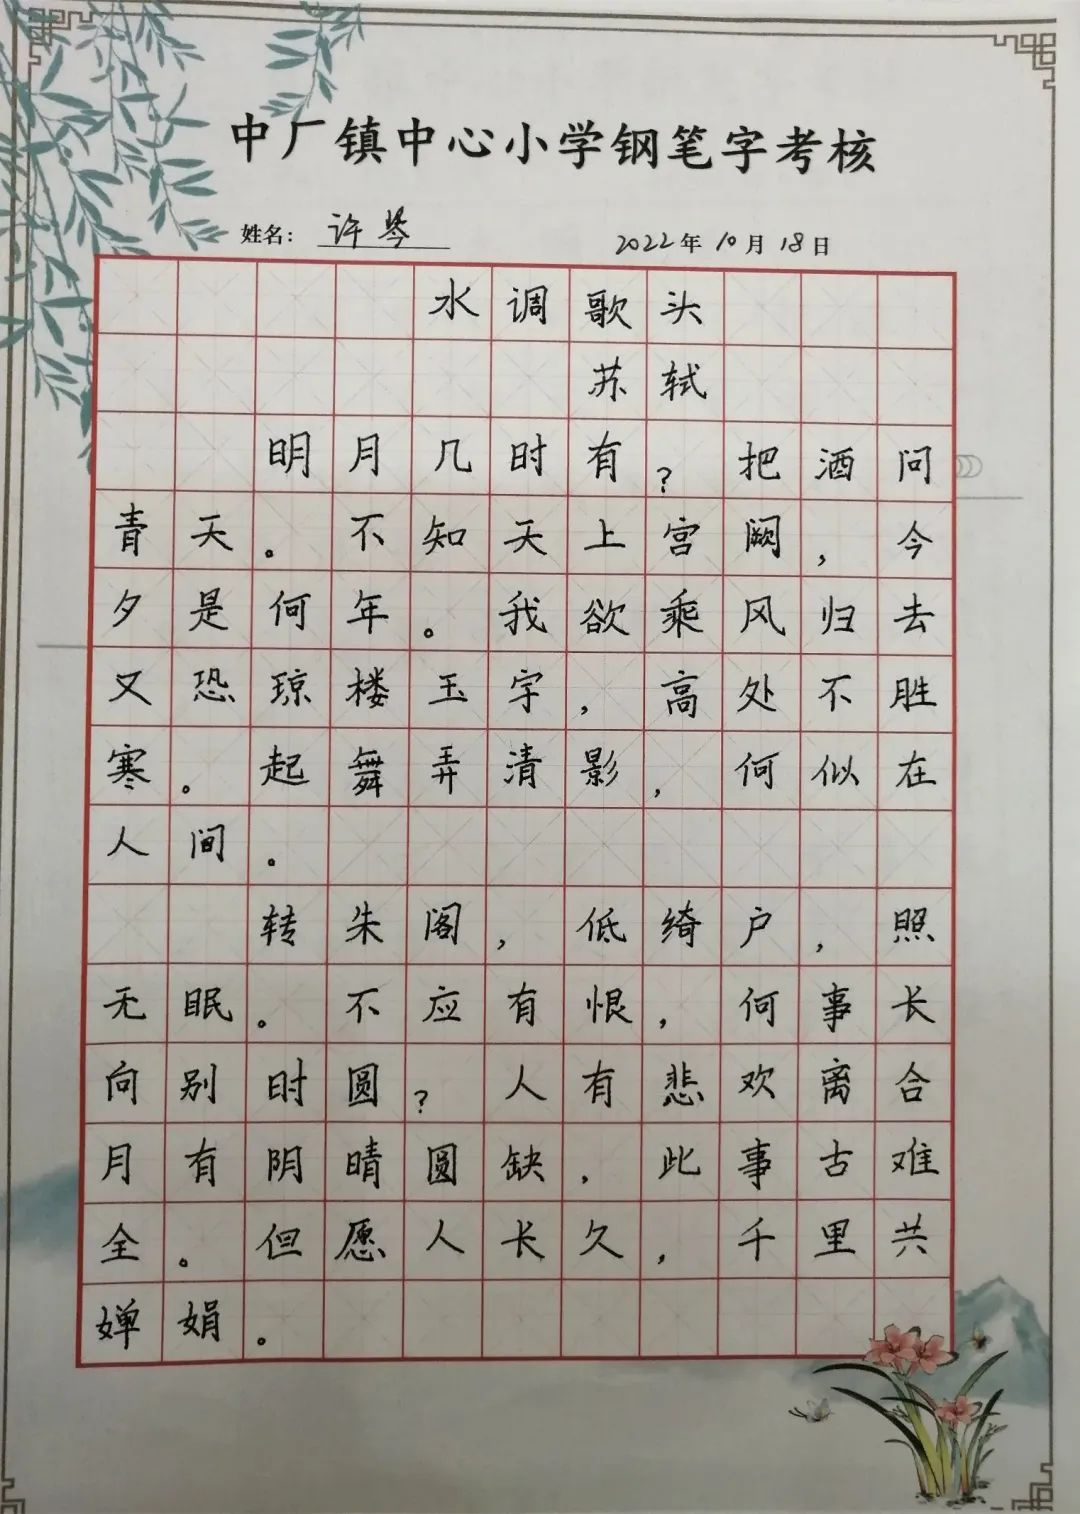 中厂镇中心小学钢笔字考核
姓名：许琴 2022年10月18日
水调歌头
苏轼
明月几时有？把酒问
青天。不知天上宫阙，今
夕是何年。我欲乘风归去
又恐琼楼玉宇，高处不胜
寒。起舞弄清影，何似在
人间。
转朱阁，低绮户，照
无眠。不应有恨，何事长
向别时圆？人有悲欢离合
月有阴晴圆缺，此事古难
全。但愿人长久，千里共
婵娟。